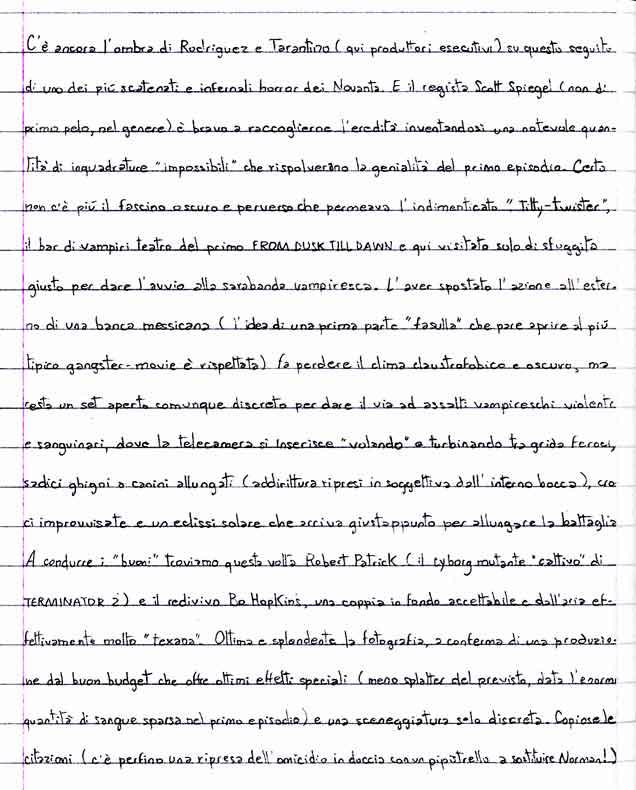 C'è ancora l'ombra di Rodriguez e Tarantino (qui produttori esecutivi) su questo seguito
di uno dei più scatenati e infernali horror dei Novanta. E il regista Scott Spiegel (non di
primo pelo, nel genere) è bravo a raccoglierne l'eredità inventandosi una notevole quan-
tità di inquadrature "impossibili" che rispolverano la genialità del primo episodio. Certo
non c'è più il fascino oscuro e perverso che permeava l'indimenticato "Titty-twister",
il bar di vampiri teatro del primo FROM DUSK TILL DAWN e qui visitato solo di sfuggita
giusto per dare l'avvio alla sarabanda vampiresca. L'aver spostato l'azione all'ester-
no di una banca messicana (l'idea di una prima parte "fasulla" che pare aprire al più
tipico gangster-movie è rispettata) fa perdere il clima claustrofobico e oscuro, ma
resta un set aperto comunque discreto per dare il via ad assalti vampireschi violenti
e sanguinari, dove la telecamera si inserisce "volando" e turbinando tra grida feroci,
sadici ghigni e canini allungati (addirittura ripresi in soggettiva dall'interno bocca), cro
ci improvvisate e un eclissi solare che arriva giustappunto per allungare la battaglia
A condurre i "buoni" troviamo questa volta Robert Patrick (il cyborg mutante "cattivo" di
TERMINATOR 2) e il redivivo Bo Hopkins, una coppia in fondo accettabile e dall'aria ef-
fettivamente molto "texana". Ottima e splendente la fotografia, a conferma di una produzio-
ne dal buon budget che offre ottimi effetti speciali (meno splatter del previsto, data l'enorme
quantità di sangue sparsa nel primo episodio) e una sceneggiatura solo discreta. Copiose le
citazioni (c'è perfino una ripresa dell'omicidio in doccia con un pipistrello a sostituire Norman!)